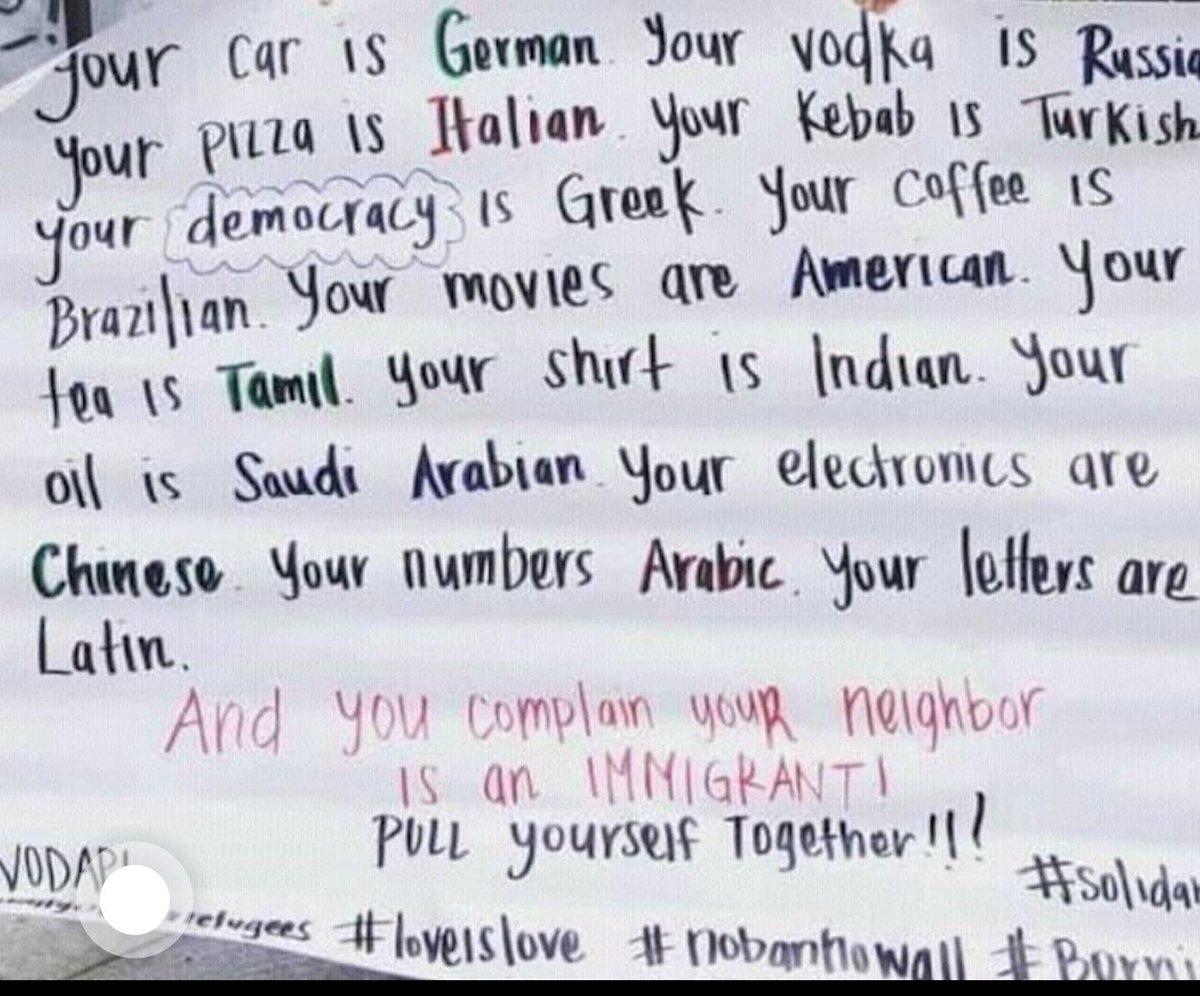 your car is German. Your vodka is Russia
your pizza is Italian. Your Kebab is Turkish
your democracy is Greek. Your coffee is
Brazilian. Your movies are American. Your
tea is Tamil. Your shirt is Indian. Your
oil is Saudi Arabian. Your electronics are
Chinese. Your numbers Arabic. Your letters are
Latin.
And you complain your neighbor
is an IMMIGRANT!
PULL yourself Together!!!
#solidar
refugees #loveislove #nobannowall